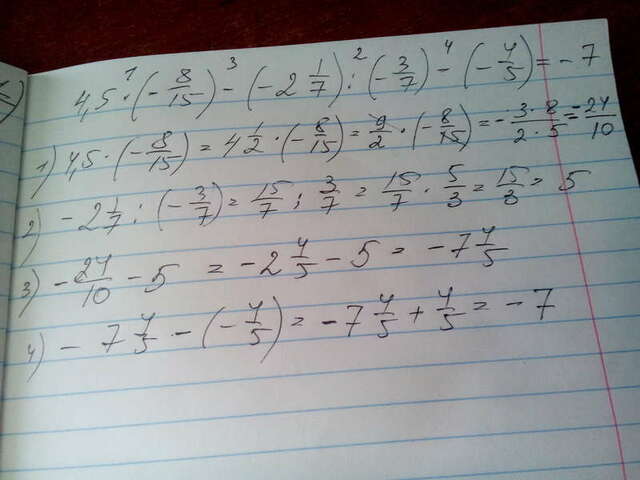 4,5 · (-8/15) - (-2 1/7) : (-3/7) - (-4/5) = -7
1) 4,5 · (-8/15) = 4 1/2 · (-8/15) = 9/2 · (-8/15) = - 3·8/2·5 = -24/10
2) -2 1/7 : (-3/7) = 15/7 : 3/7 = 15/7 · 5/3 = 15/3 = 5
3) -24/10 - 5 = -2 4/5 - 5 = -7 4/5
4) -7 4/5 - (-4/5) = -7 4/5 + 4/5 = -7